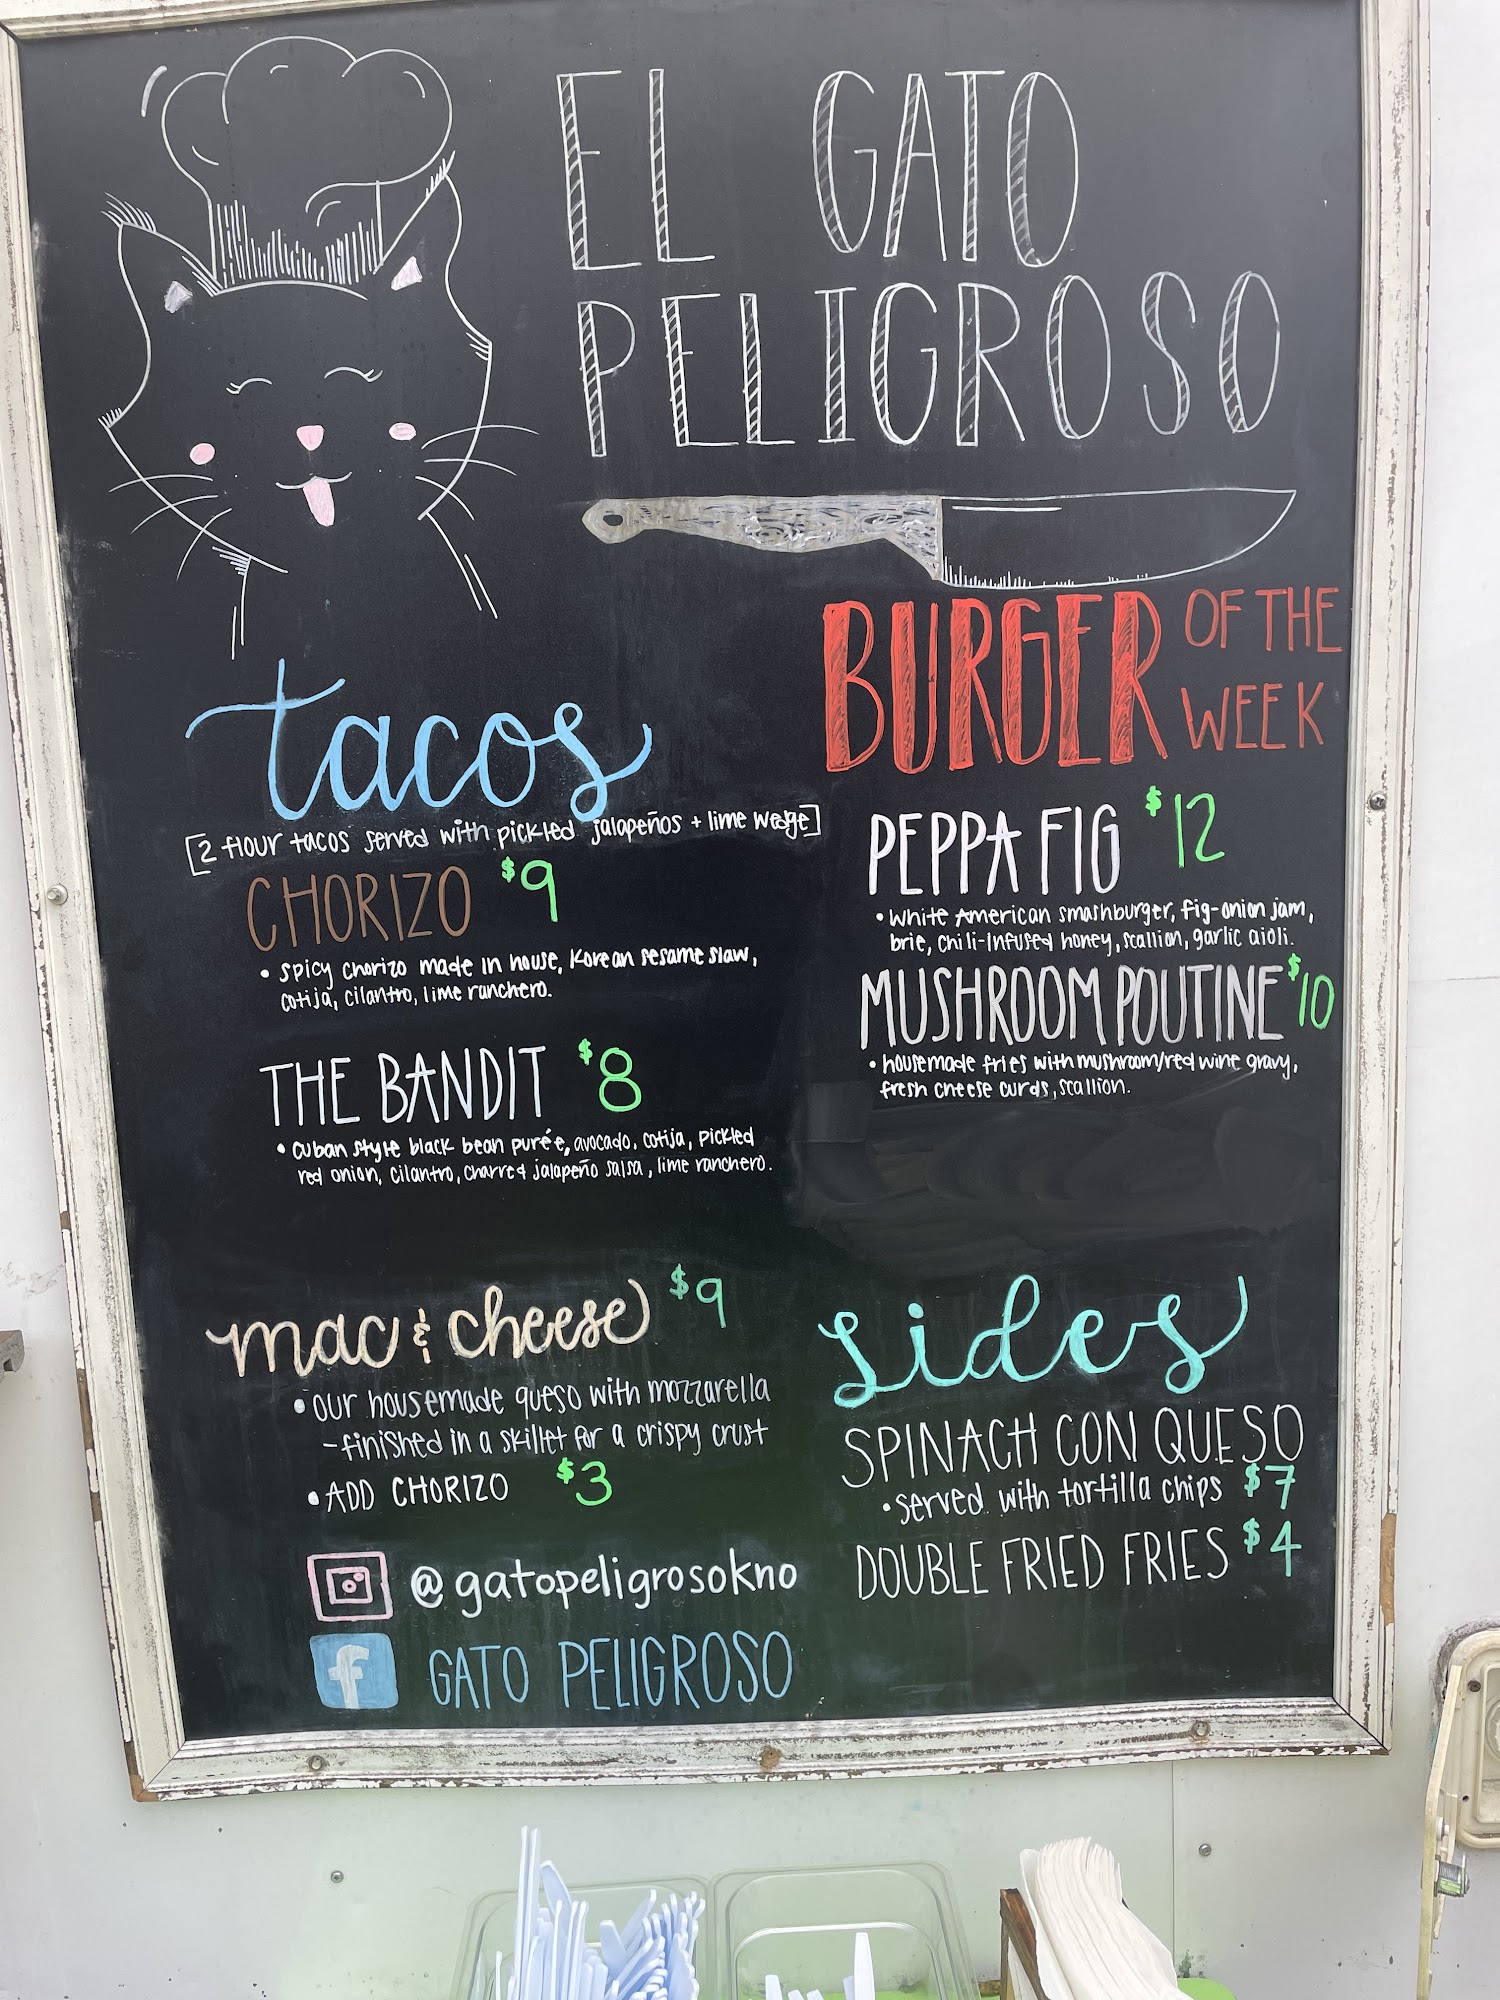 EL GATO
PELIGROSO
BURGER OF THE
WEEK
tacos
[2 flour tacos served with pickled jalapeños + lime wedge]
CHORIZO $9
• spicy chorizo made in house, Korean sesame slaw,
cotija, cilantro, lime ranchero.
THE BANDIT $8
• Cuban style black bean purée, avocado, cotija, pickled
red onion, cilantro, charred jalapeño salsa, lime ranchero.
PEPPA FIG $12
• White American smashburger, fig-onion jam,
brie, chili-infused honey, scallion, garlic aioli.
MUSHROOM POUTINE $10
• housemade fries with mushroom/red wine gravy,
fresh cheese curds, scallion.
mac & cheese $9
• our housemade queso with mozzarella
- finished in a skillet for a crispy crust
• ADD CHORIZO $3
sides
SPINACH CON QUESO
• served with tortilla chips $7
DOUBLE FRIED FRIES $4
@gatopeligrosokno
f GATO PELIGROSO